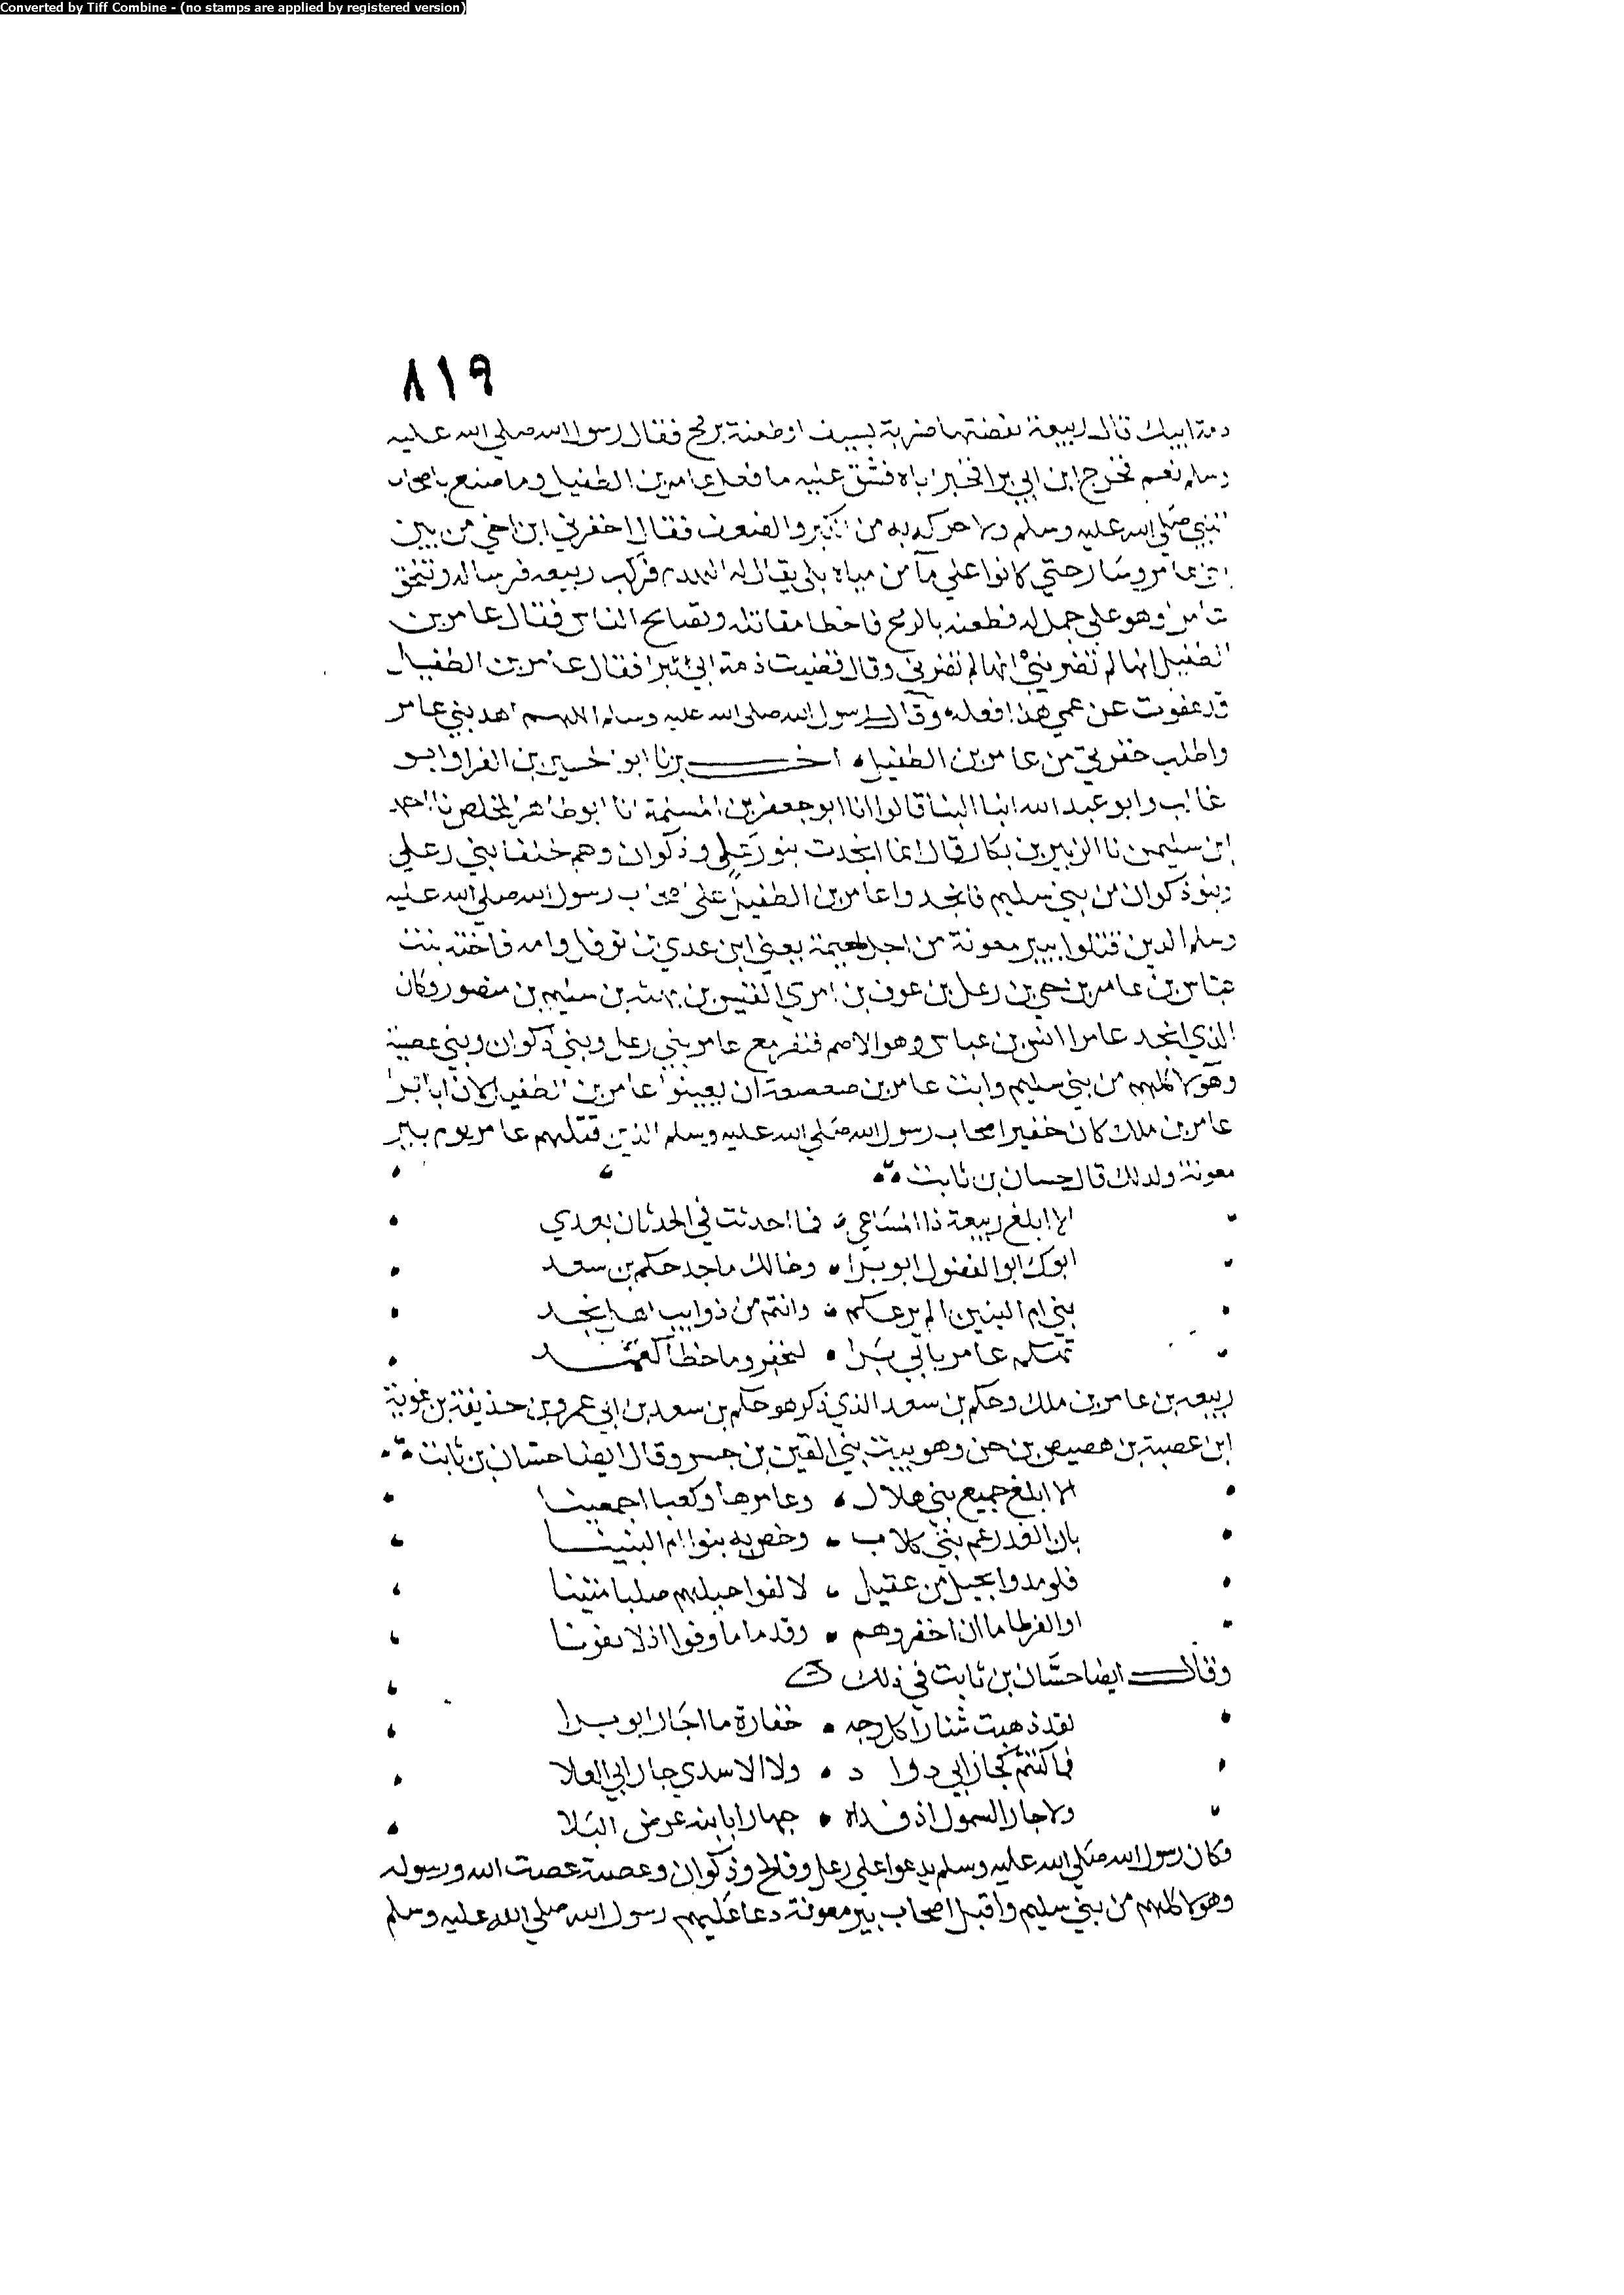 Converted by Tiff Combine - (no stamps are applied by registered version)
٨١٩
ذمة ابيك قال ربيعة نقضتها ضربة بسيف او طعنة برمح فقال رسول الله صلى الله عليه
وسلم نعم فخرج ابن ابي برا فخبر اباه فشق عليه ما فعل عامر بن الطفيل وما صنع باصحاب
النبي صلى الله عليه وسلم ولا حركة به من الكبر والضعف فقال اخفرني ابن اخي من بين
بني عامر وسار حتي كانوا علي مآ من مياه بلي يقال له الهدم فركب ربيعه فرسا له وتلحق
عامر وهو علي جمل له فطعنه بالرمح فاخطا مقاتله وتصايح الناس فقال عامر بن
الطفيل انها لم تضرني انها لم تضرني وقال قضيت ذمة ابي برا فقال عامر بن الطفيل
قد عفوت عن عمي هذا فعله وقال رسول الله صلى الله عليه وسلم اللهم اهد بني عامر
واطلب خفرتي من عامر بن الطفيل اخبرنا ابو الحسين بن الفرا وابو
غالب وابو عبد الله ابنا البنا قالوا انا ابو جعفر بن المسلمة انا ابو طاهر المخلص نا احمد
ابن سليمن نا الزبير بن بكار قال انما انجدت بنو رعلي وذكوان وهم خلفا بني رعلي
وبنو ذكوان من بني سليم فانجدوا عامر بن الطفيل على اصحاب رسول الله صلي الله عليه
وسلم الذين قتلوا ببير معونة من اجل طعيمة يعني ابن عدي بن نوفل وامه فاخته بنت
عباس بن عامر بن حي بن رعل بن عوف بن امري القيس بن بهثه بن سليم بن منصور وكان
الذي انجد عامرا انس بن عباس وهو الاصم فنفر مع عامر بني رعل وبني ذكوان وبني عصية
وهولا كلهم من بني سليم وابت عامر بن صعصعة ان يعينوا عامر بن الطفيل لان ابا برا
عامر بن ملك كان خفير اصحاب رسول الله صلي الله عليه وسلم الذين قتلهم عامر يوم بير
معونة ولذلك قال حسان بن ثابت
الا ابلغ ربيعة ذا المساعي فما احدثت في الحدثان بعدي
ابوك ابو الفضول ابو برا وخالك ماجد حكم بن سعد
بني ام البنين الم يرعكم وانتم من ذوايب اهل نجد
تهكم عامر بابي برا ليخفره وما خطأ كعمد
ربيعه بن عامر بن ملك وحكم بن سعد الذي ذكر هو حكم بن سعد بن ابي عمرو بن حذيفة بن غوية
ابن عصبة بن هصيص بن حن وهو بيت بني القين بن جسر وقال ايضا حسان بن ثابت
الا ابلغ جميع بني هلال وعامرها وكعبا اجمعينا
بان الغدر عم بني كلاب وخص به بنوا ام البنينا
فلو مدوا بحبل من عقيل لالفوا حبلهم صلبا متينا
او القرطا ما ان اخفروهم وقدما ما وفوا اذ لا يفونا
وقال ايضا حسان بن ثابت في ذلك
لقد ذهبت شنارا كل وجه خفارة ما اجار ابو برا
فما كنتم كجار ابي دواد ولا الاسدي جار ابي العلا
ولا جار السمول اذ فداه جهارا بابنه عرض البلا
وكان رسول الله صلي الله عليه وسلم يدعوا علي رعل وفالح وذكوان وعصية عصت الله ورسوله
وهولا كلهم من بني سليم واقبل اصحاب بير معونة دعا عليهم رسول الله صلي الله عليه وسلم